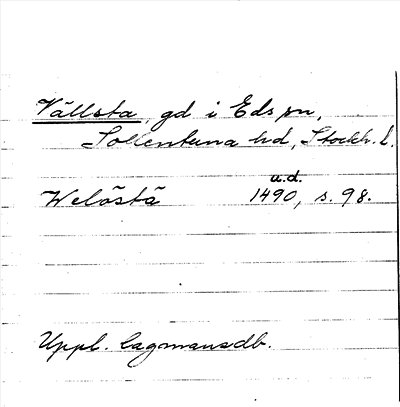 Vällsta, gd i Eds sn,
Sollentuna hd, Stockh. l.
u.d.
Welöstä 1490, s. 98.
Uppl. lagmansdb.